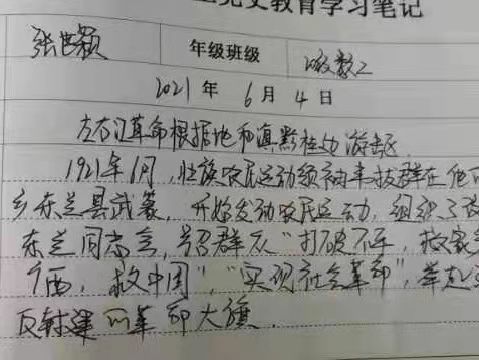 党史教育学习笔记
张世颖 年级班级 级数2
2021年 6月 4日
左右江革命根据地和滇黔桂边游击区
1921年1月,壮族农民运动领袖韦拔群在他
乡东兰县武篆,开始发动农民运动,组织了改
东兰同志会,号召群众"打破不平,救家
救中国","实现社会革命",举起
反封建的革命大旗.